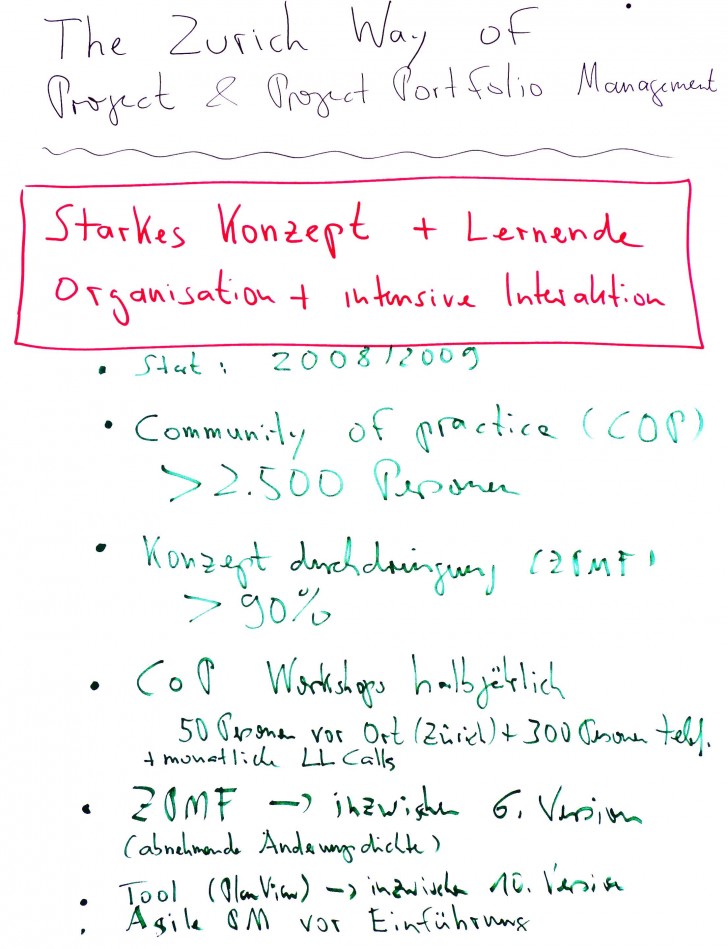 The Zurich Way of
Project & Project Portfolio Management
Starkes Konzept + Lernende
Organisation + intensive Interaktion
• Start: 2008/2009
• Community of practice (COP)
> 2.500 Personen
• Konzept durchdringung (ZPMF)
> 90%
• CoP Workshops halbjährlich
50 Personen vor Ort (Zürich) + 300 Personen telef.
+ monatliche LL Calls
• ZPMF -> inzwischen 6. Version
(abnehmende Änderungsdichte)
• Tool (PlanView) -> inzwischen 10. Version
• Agile PM vor Einführung